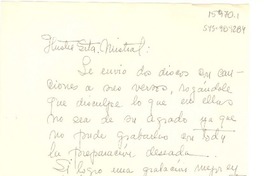 15970.1
Ilustre Srta. Mistral:
Le envío dos discos con can-
ciones a sus versos, rogándole
que disculpe lo que en ellas
no sea de su agrado ya que
no pude grabarlas en toda
la preparación deseada.
Si logro una grabación mejor